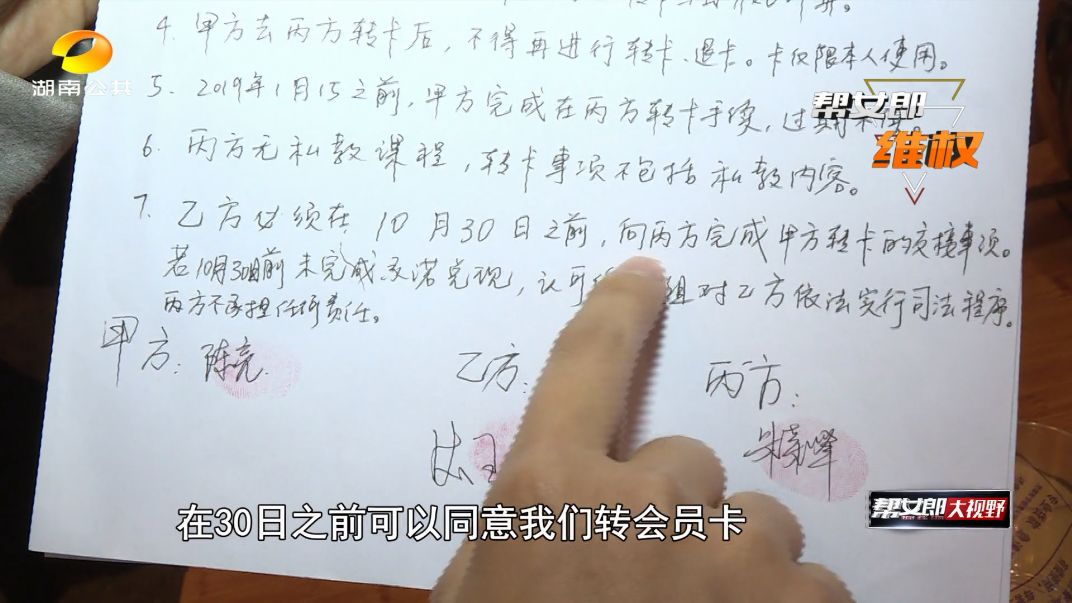 4. 甲方去丙方转卡后，不得再进行转卡、退卡。卡仅限本人使用。
湖南公共
5、2019年1月15之前，甲方完成在丙方转卡手续，过期不
帮女郎
维权
6、丙方无私教课程，转卡事项不包括私教内容。
7、乙方必须在10月30日之前，向丙方完成甲方转卡的交接事项。
若10月30日前未完成承诺兑现，认可 组对乙方依法实行司法程序。
丙方不承担任何责任。
甲方：陈亮
乙方：
丙方：
帮女郎大视野
在30日之前可以同意我们转会员卡